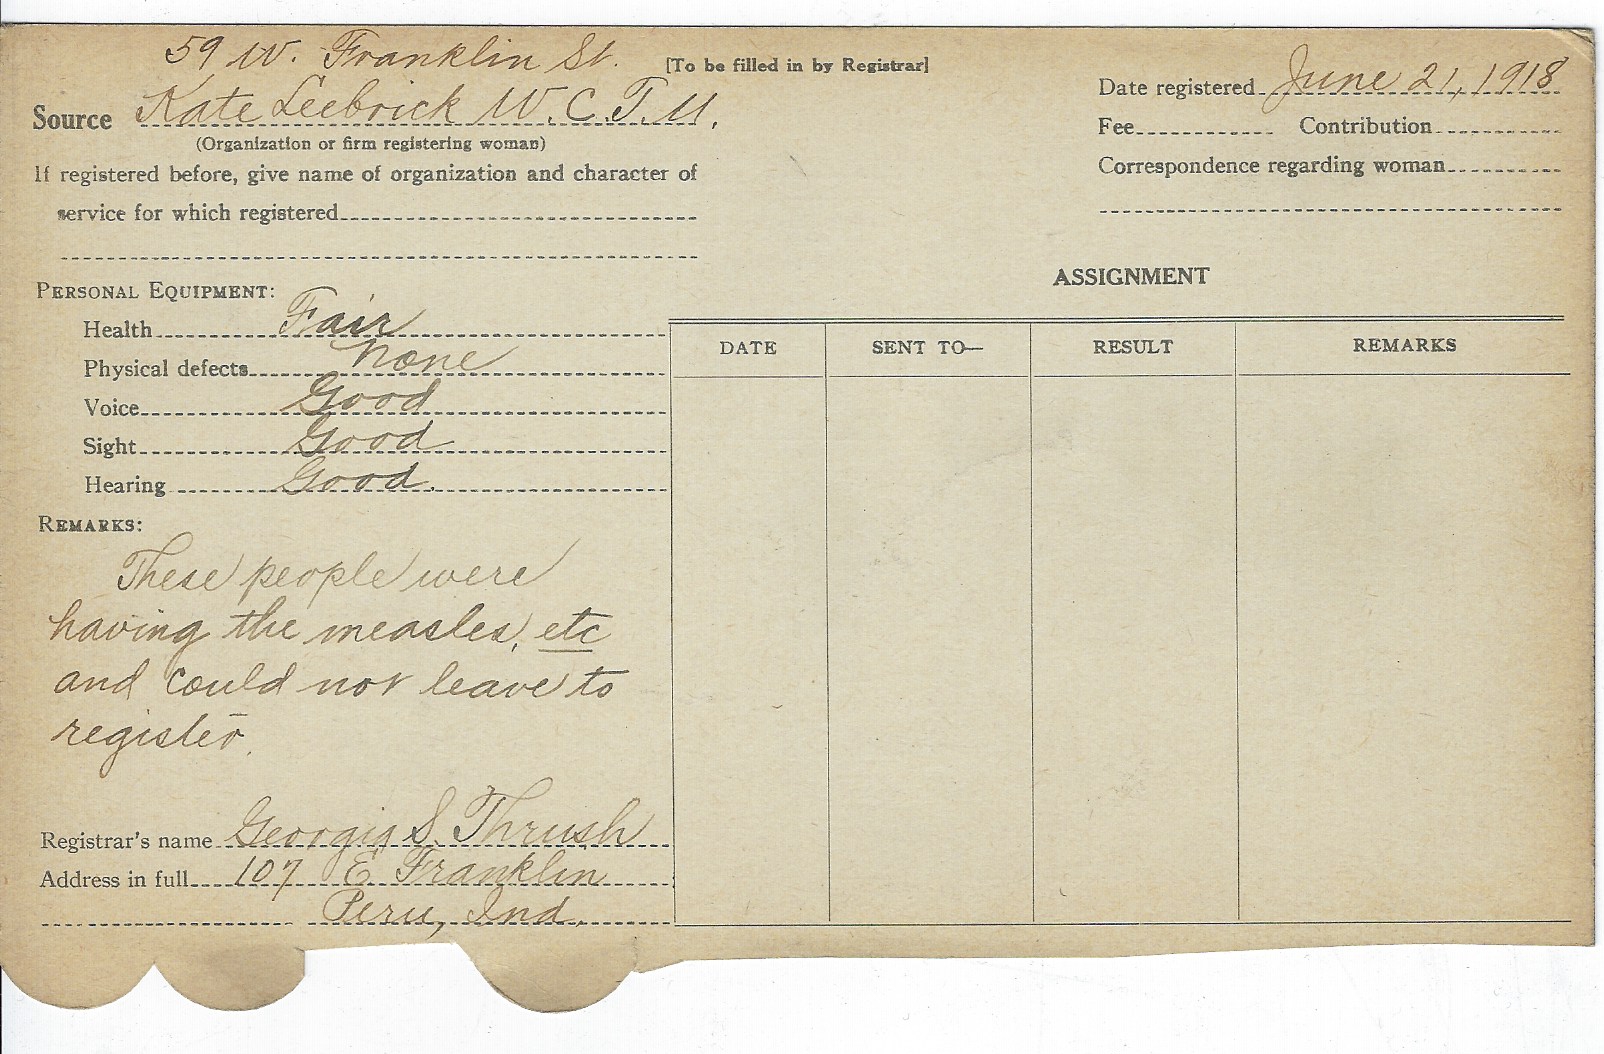 59 W. Franklin St.
[To be filled in by Registrar]
Source Kate Leebrick W. C. T. U.
(Organization or firm registering woman)
If registered before, give name of organization and character of
service for which registered
Date registered June 21, 1918
Fee Contribution
Correspondence regarding woman
PERSONAL EQUIPMENT:
Health Fair
Physical defects None
Voice Good
Sight Good
Hearing Good.
REMARKS:
These people were
having the measles, etc
and could not leave to
register.
Registrar's name Georgia S. Thrush
Address in full 107 E Franklin
Peru, Ind.
ASSIGNMENT
DATE SENT TO— RESULT REMARKS